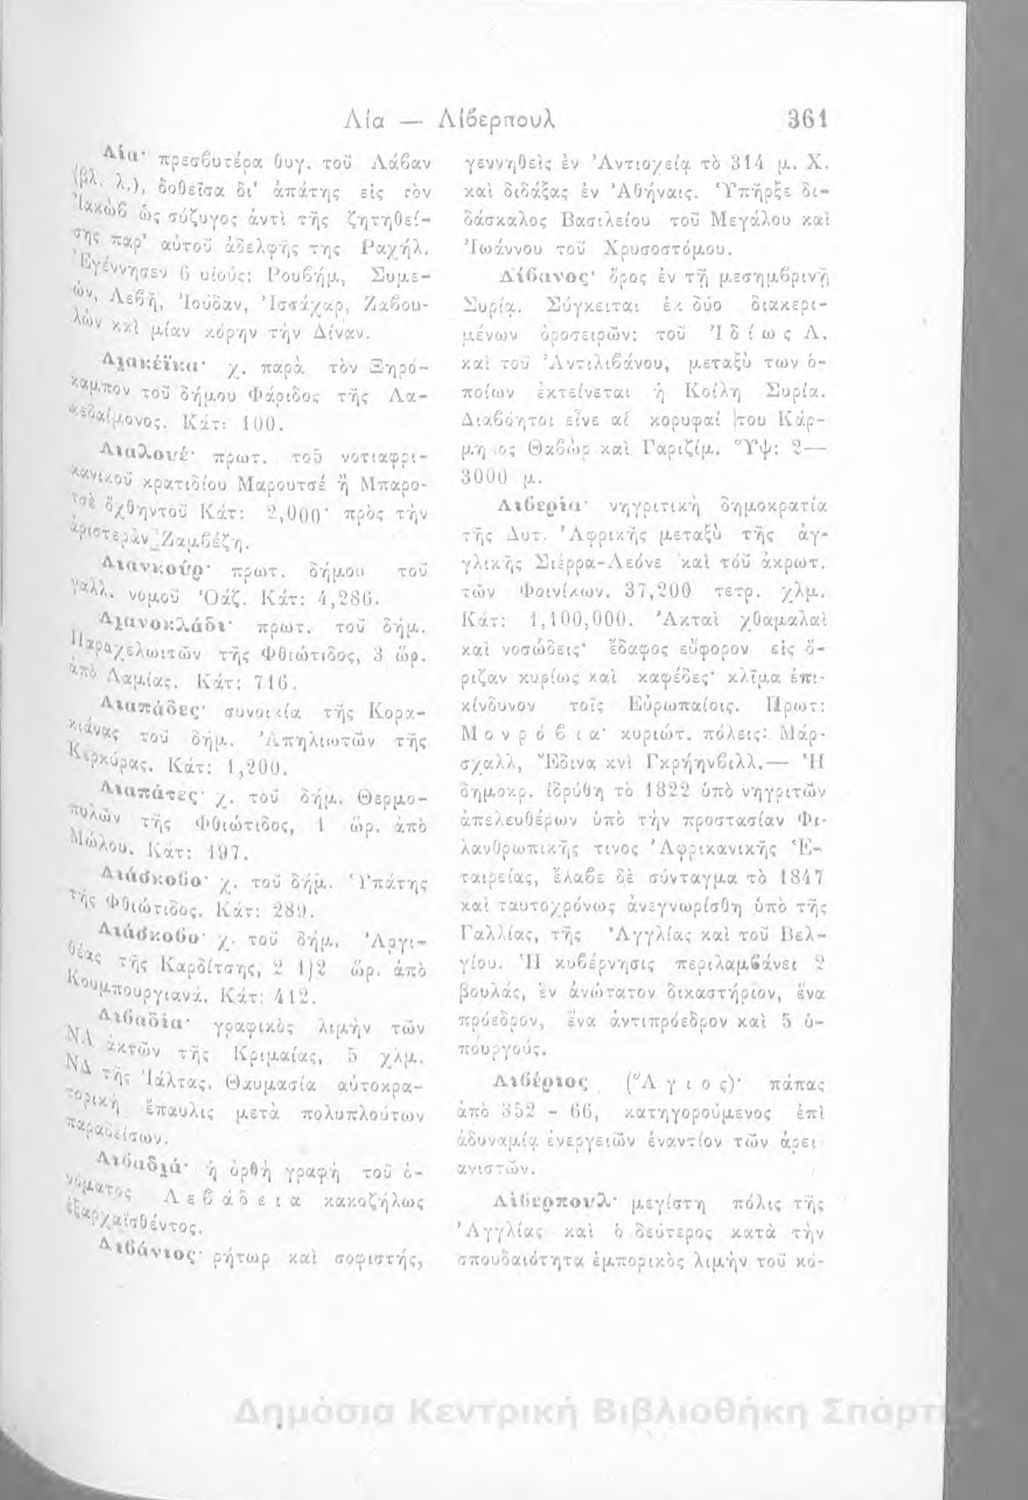 Λία — Λίβερπουλ 361
Λία· πρεσβυτέρα θυγ. τοῦ Λάβαν
(βλ. λ.), δοθεῖσα δι' ἀπάτης εἰς τὸν
Ἰακὼβ ὡς σύζυγος ἀντὶ τῆς ζητηθεί-
σης παρ' αὐτοῦ ἀδελφῆς της Ραχήλ.
Ἐγέννησεν 6 υἱούς: Ρουβήμ, Συμε-
ών, Λεβῆ, Ἰούδαν, Ἰσσάχαρ, Ζαβου-
λὼν καὶ μίαν κόρην τὴν Δίναν.
Λιακέϊκα· χ. παρὰ τὸν Ξηρό-
καμπον τοῦ δήμου Φάριδος τῆς Λα-
κεδαίμονος. Κάτ: 100.
Λιαλουέ· πρωτ. τοῦ νοτιαφρι-
κανικοῦ κρατιδίου Μαρουτσέ ἢ Μπαρο-
τσὲ ὄχθην τοῦ Κάτ: 2,000· πρὸς τὴν
ἀριστερὰν Ζαμβέζη.
Λιανκούρ· πρωτ. δήμου τοῦ
γαλλ. νομοῦ Ὀάζ. Κάτ: 4,286.
Λιανοκλάδι· πρωτ. τοῦ δήμ.
Παραχελωιτῶν τῆς Φθιώτιδος, 3 ὥρ.
ἀπὸ Λαμίας. Κάτ: 716.
Λιαπάδες· συνοικία τῆς Κορα-
κιάνας τοῦ δήμ. Ἀπηλιωτῶν τῆς
Κερκύρας. Κάτ: 1,200.
Λιαπάτες· χ. τοῦ δήμ. Θερμο-
πυλῶν τῆς Φθιώτιδος, 1 ὥρ. ἀπὸ
Μώλου. Κάτ: 197.
Λιάσκοβο· χ. τοῦ δήμ. Ὑπάτης
τῆς Φθιώτιδος. Κάτ: 289.
Λιάσκοβο· χ. τοῦ δήμ. Ἀργι-
θέας τῆς Καρδίτσης, 2 1)2 ὥρ. ἀπὸ
Κουμπουργιανά. Κάτ: 412.
Λιβαδία· γραφικὸς λιμὴν τῶν
ΝΔ ἀκτῶν τῆς Κριμαίας, 5 χλμ.
ΝΔ τῆς Ἰάλτας. Θαυμασία αὐτοκρα-
τορικὴ ἔπαυλις μετὰ πολυπλούτων
παραδείσων.
Λιβαδιά· ἡ ὀρθὴ γραφὴ τοῦ ὀ-
νόματος Λεβάδεια κακοζήλως
ἐξαρχαϊσθέντος.
Λιβάνιος· ρήτωρ καὶ σοφιστής,
γεννηθεὶς ἐν Ἀντιοχείᾳ τὸ 314 μ. Χ.
καὶ διδάξας ἐν Ἀθήναις. Ὑπῆρξε δι-
δάσκαλος Βασιλείου τοῦ Μεγάλου καὶ
Ἰωάννου τοῦ Χρυσοστόμου.
Λίβανος· ὄρος ἐν τῇ μεσημβρινῇ
Συρίᾳ. Σύγκειται ἐκ δύο διακεκρι-
μένων ὀροσειρῶν: τοῦ Ἰδίως Λ.
καὶ τοῦ Ἀντιλιβάνου, μεταξὺ τῶν ὁ-
ποίων ἐκτείνεται ἡ Κοίλη Συρία.
Διαβόητοι εἶνε αἱ κορυφαί του Κάρ-
μηλος Θαβὼρ καὶ Γαριζίμ. Ὕψ: 2—
3000 μ.
Λιβερία· νηγριτικὴ δημοκρατία
τῆς Δυτ. Ἀφρικῆς μεταξὺ τῆς ἀγ-
γλικῆς Σιέρρα-Λεόνε καὶ τοῦ ἀκρωτ.
τῶν Φοινίκων. 37,200 τετρ. χλμ.
Κάτ: 1,100,000. Ἀκταὶ χθαμαλαὶ
καὶ νοσώδεις· ἔδαφος εὔφορον εἰς ὄ-
ριζαν κυρίως καὶ καφέδες· κλῖμα ἐπι-
κίνδυνον τοῖς Εὐρωπαίοις. Πρωτ:
Μονρόβια· κυριώτ. πόλεις: Μάρ-
σχαλλ, Ἔδινα καὶ Γκρήηνβιλλ.— Ἡ
δημοκρ. ἱδρύθη τὸ 1822 ὑπὸ νηγριτῶν
ἀπελευθέρων ὑπὸ τὴν προστασίαν Φι-
λανθρωπικῆς τινος Ἀφρικανικῆς Ἑ-
ταιρείας, ἔλαβε δὲ σύνταγμα τὸ 1847
καὶ ταυτοχρόνως ἀνεγνωρίσθη ὑπὸ τῆς
Γαλλίας, τῆς Ἀγγλίας καὶ τοῦ Βελ-
γίου. Ἡ κυβέρνησις περιλαμβάνει 2
βουλάς, ἓν ἀνώτατον δικαστήριον, ἕνα
πρόεδρον, ἕνα ἀντιπρόεδρον καὶ 5 ὑ-
πουργούς.
Λιβέριος (Ἅγιος)· πάπας
ἀπὸ 352 - 66, κατηγορούμενος ἐπὶ
ἀδυναμίᾳ ἐνεργειῶν ἐναντίον τῶν ἀρει
ανιστῶν.
Λίβερπουλ· μεγίστη πόλις τῆς
Ἀγγλίας καὶ ὁ δεύτερος κατὰ τὴν
σπουδαιότητα ἐμπορικὸς λιμὴν τοῦ κό-
Δημόσια Κεντρική Βιβλιοθήκη Σπάρτ